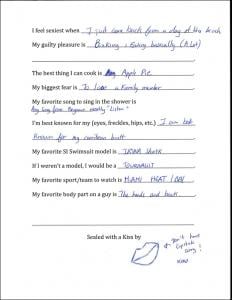 I feel sexiest when I just came back from a day at the beach
My guilty pleasure is Baking + Eating basically (A lot)
The best thing I can cook is Apple Pie
My biggest fear is To lose a family member
My favorite song to sing in the shower is
Any Song from Beyonce mostly "Listen"
I'm best known for my (eyes, freckles, hips, etc.) I am best
Known for my caribbean butt
My favorite SI Swimsuit model is IRINA SHAYK
If I weren't a model, I would be a JOURNALIST
My favorite sport/team to watch is MIAMI HEAT / NBA
My favorite body part on a guy is The hands and back
Sealed with a Kiss by
Don't have
lipstick
sorry!
xoxo